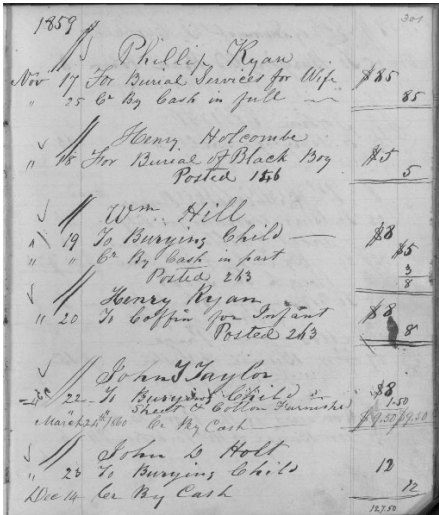 1859 301
Phillip Ryan
Nov 17 For Burial Services for Wife $85
" 25 Cr By Cash in full 85
Henry Holcombe
" 18 For Burial of Black Boy $5
Posted 156 5
Wm Hill
" 19 To Burying Child $8
" " Cr By Cash in part $5
Posted 263 3
8
Henry Ryan
" 20 To Coffin for Infant $8
Posted 263 8
John T Taylor
22 To Burying Child $8
Sheet & Cotton Furnished 1.50
March 24th 1860 Cr By Cash $9.50 $9.50
John D Holt
" 23 To Burying Child 12
Dec 14 Cr By Cash 12
127.50